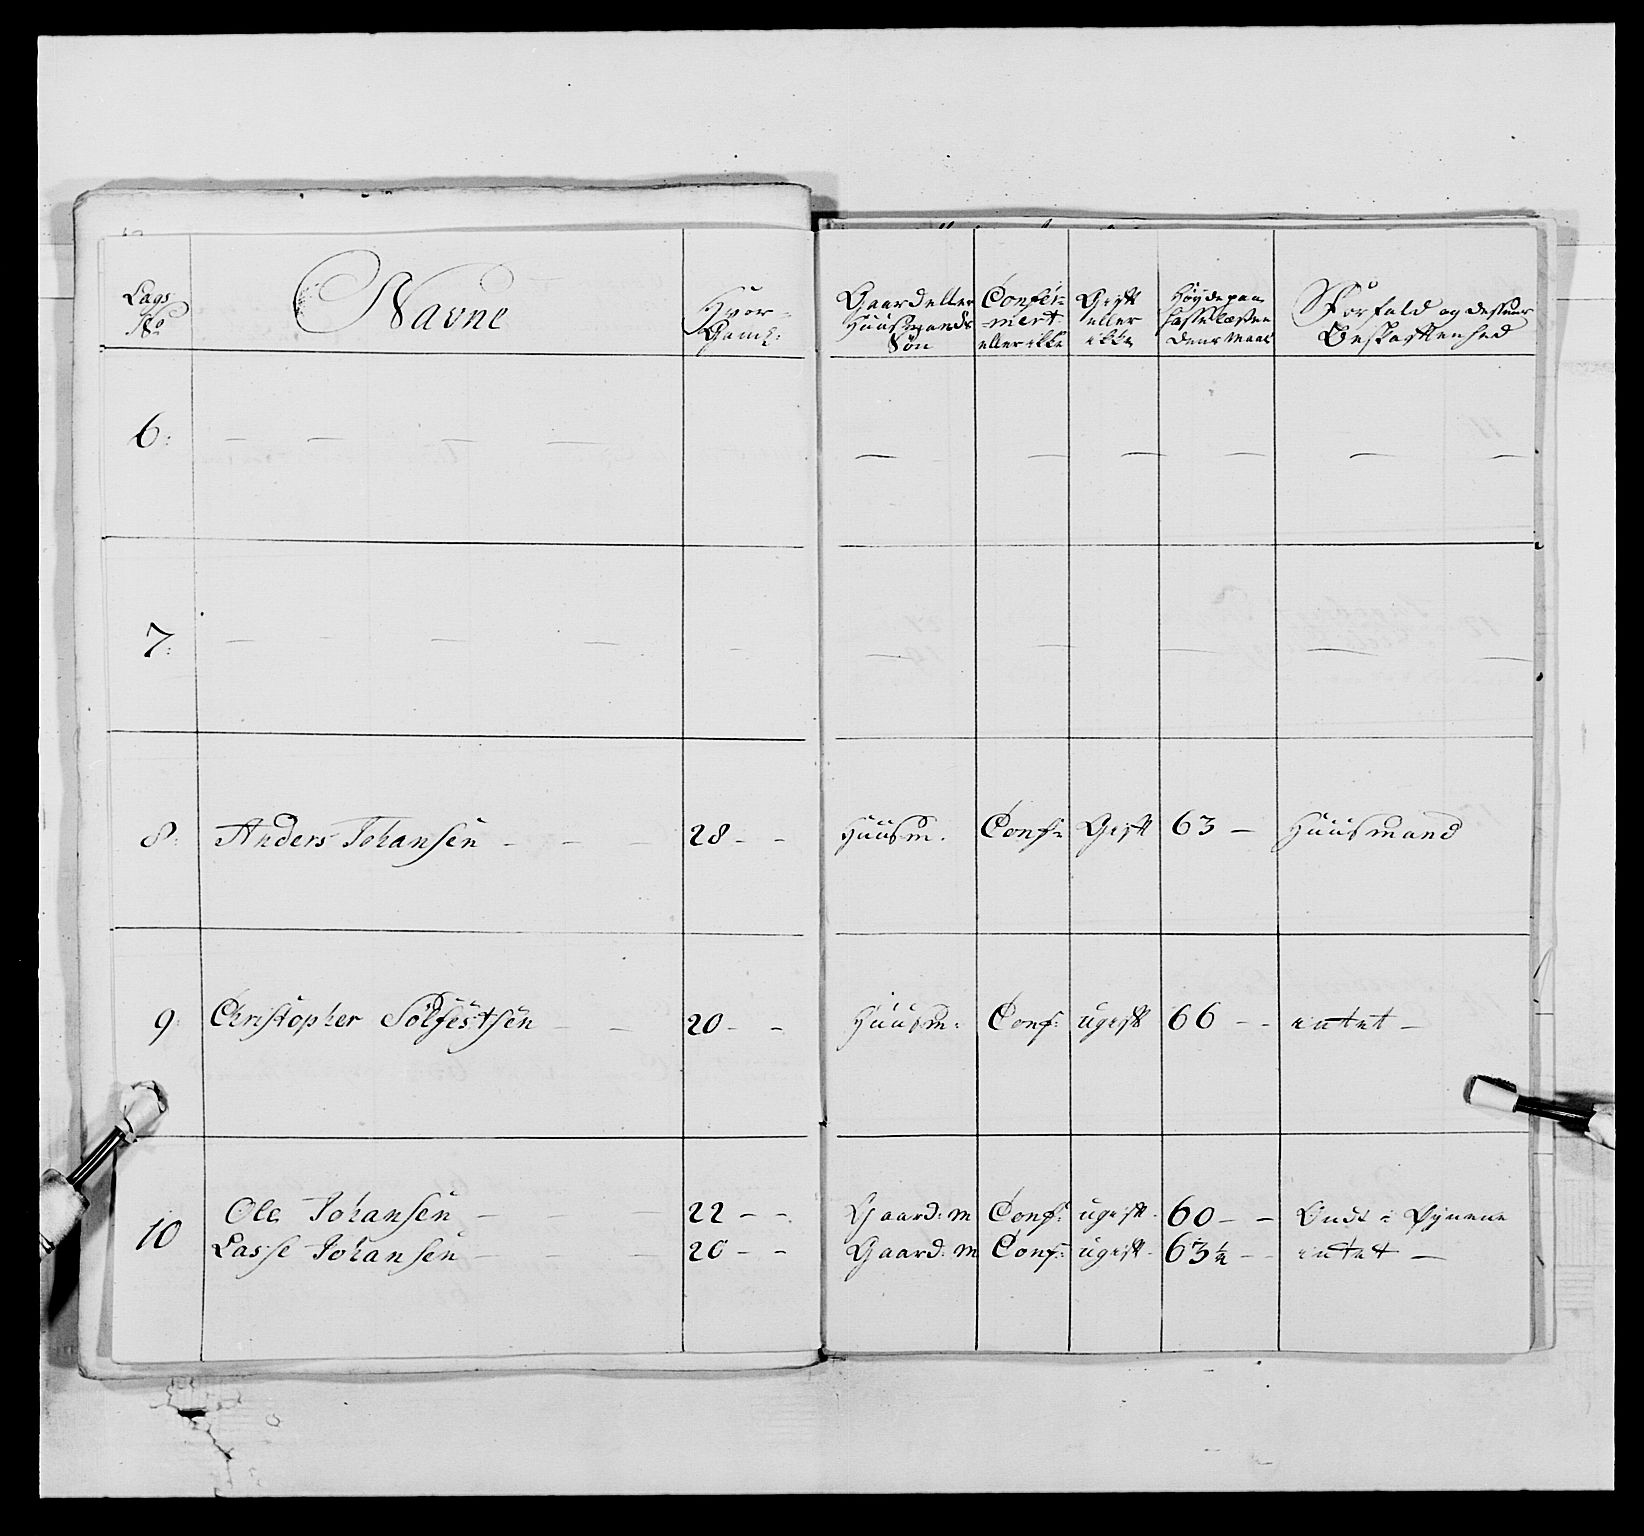 Lags No | Navne | Hvor Gaml: | Gaard eller Huusmands Søn | Confir=mert eller ikke | Gift eller ikke | Høyde paa Hosse læsten | Forfald og dessuer Beskaffenhed
6: — — — — — — — — — —
7: — — — — — — — — — —
8: Anders Johansen - - - 28 - - Huusm. Conf: Gift 63 — Huusmand
9: Christopher Solfestsen - - 20 - - Huusm: Conf: ugift 66 - - intet —
10 Ole Johansen - - - 22 - - Gaard: m Conf: ugift - 60 - - Ondt i Øynene
Lasse Johansen - - - 20 - - Gaard: m Conf: ugift - 63½ - - intet —